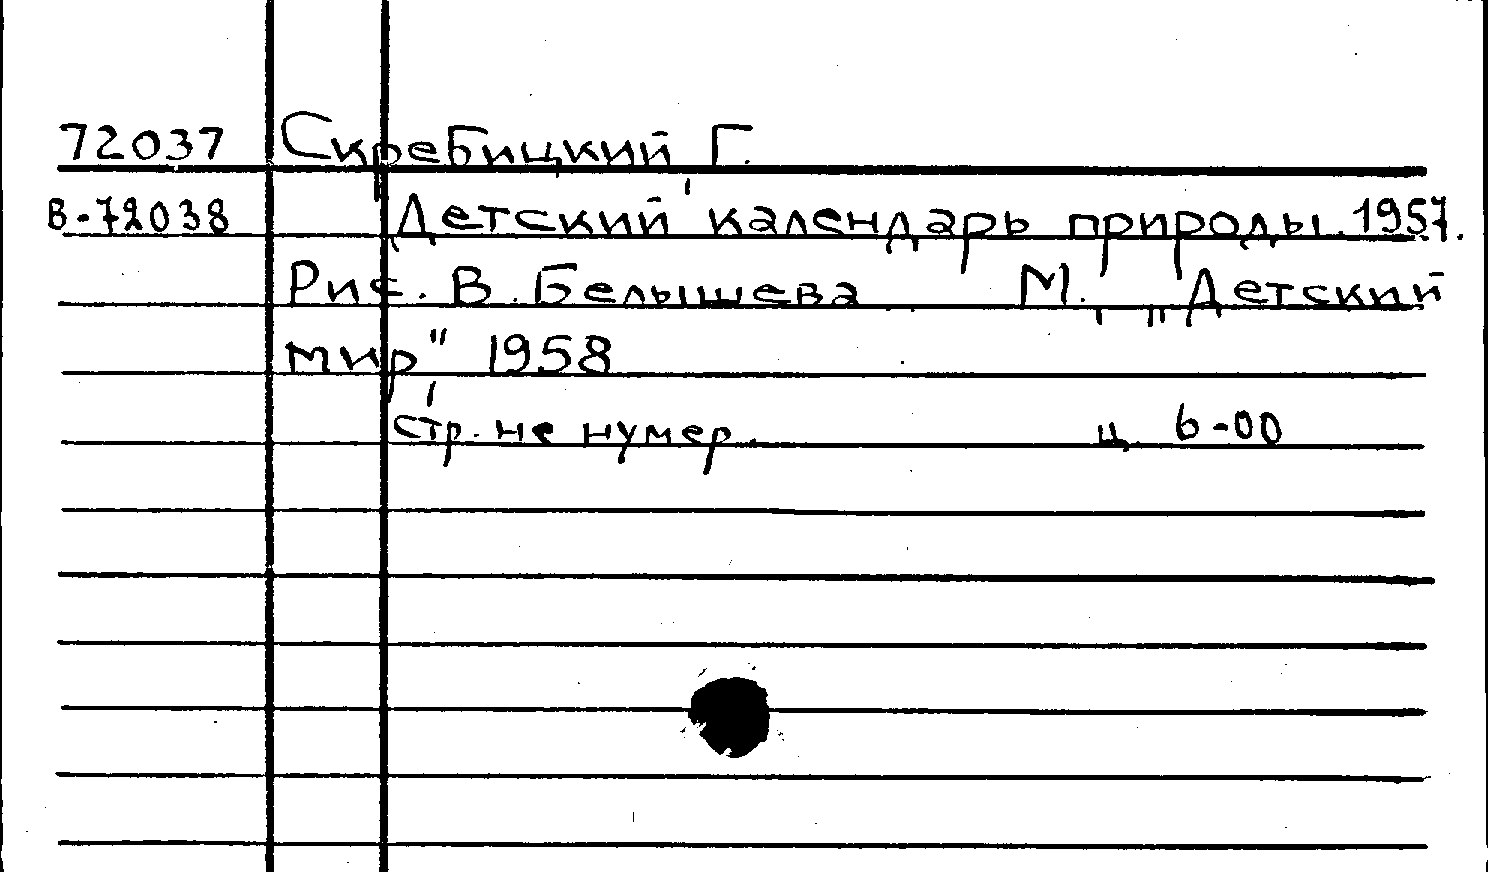 72037 Скребицкий, Г.
В-72038 Детский календарь природы. 1957.
Рис. В. Белышева М., „Детский
мир", 1958
стр. не нумер. ц. 6-00